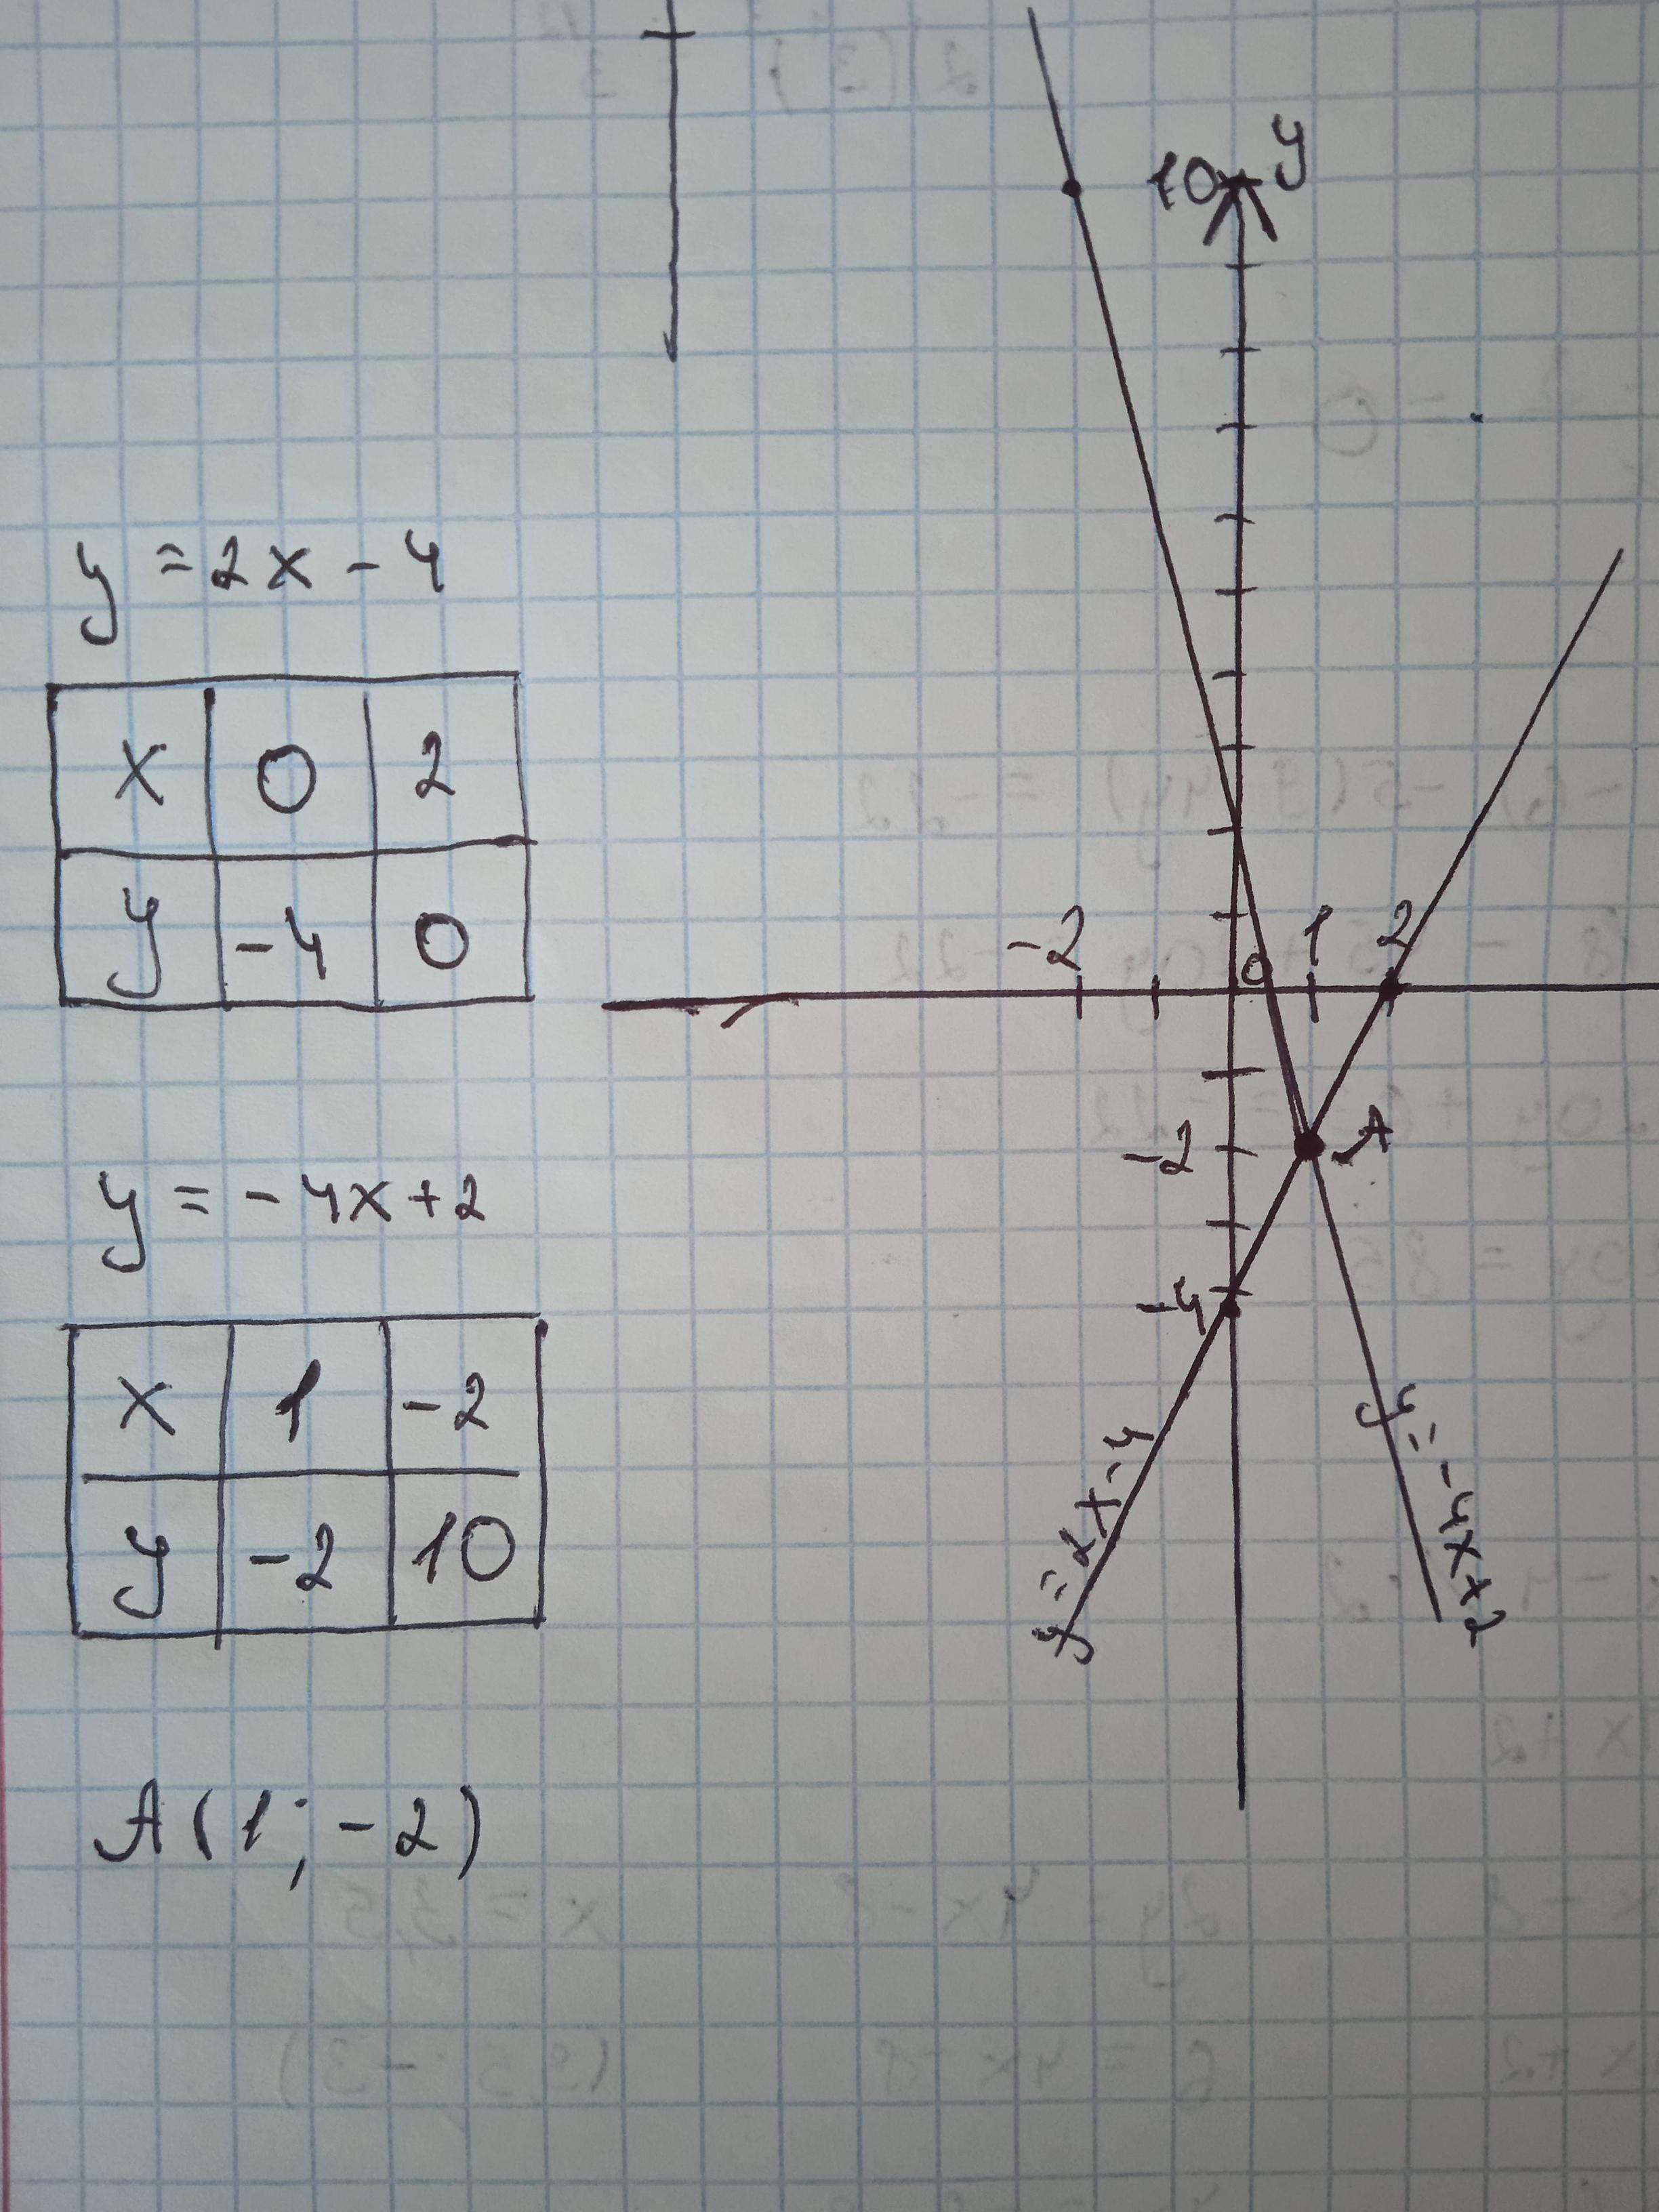 y = 2x - 4
x 0 2
y -4 0
y = -4x+2
x 1 -2
y -2 10
A(1; -2)
10 y
-2 0 1 2
-2 A
-4
y=2x-4
y=-4x+2